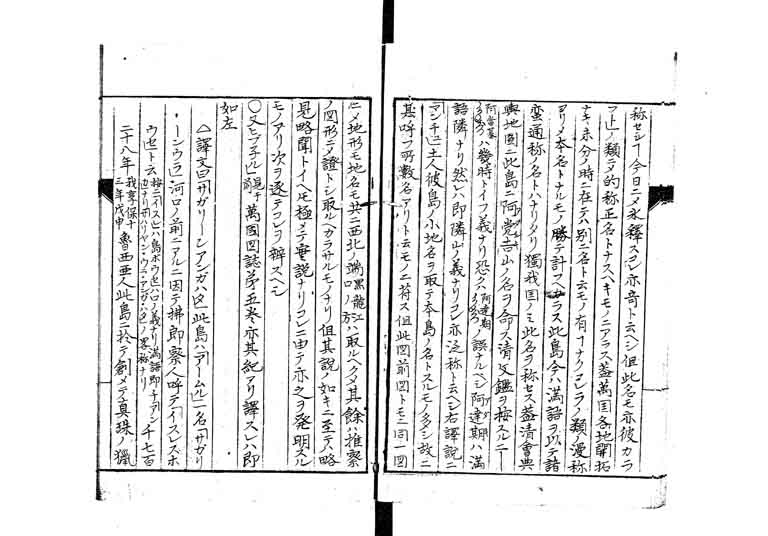 称セシハ今日ニメ氷釋スヘシ亦奇ト云ヘシ但此名モ亦彼カラ
フトノ類ニメ的称正名トナスヘキモノニアラス蓋萬国各地開拓
ナキ未分ノ時ニ在テハ別ニ名ト云モノ有コナクコレラノ類ノ漫称
ヨリメ本名トナルモノ勝テ計フヘカラス此島今ハ満語ヲ以テ諸
蛮通称ノ名トハナリタリ獨我国ノミ此名ヲ称セス蓋清會典
輿地圖ニ此島ニ阿党吉山ノ名ヲ命ス清文鑑ヲ按スルニ
ハ幾時トイフ義ナリ恐クハ阿達期ノ誤ナルヘシ阿達期ハ満
語隣ナリ然レハ即隣山ノ義ナリコレ亦泛称ト云ヘシ右譯説ニ
マンチウ土人彼島ノ小地名ヲ取テ本島ノ名トスルモノ多シ故ニ
其呼フ所数名アリト云モノニ符ス但此図前図トモニ同一図
ニメ地形モ地名モ共ニ西北ノ端黒龍江口ノ方ハ取ルヘクメ其餘ハ推察
ノ図形ニメ證トシ取ルヘカラサルモノナリ但其説ノ如キニ至テハ略
是略聞トイヘモ極メテ實説ナリコレニ由テ亦之ヲ発明スル
モノアリ次ヲ逐テコレヲ辨スヘシ
〇又ヒブネル見干前萬國図誌第五巻亦其紀アリ譯スレハ即
如左
△譯文曰サガリーンアンガハタ此島ハアームル一名サガリ
ーンウラ河口ノ前ニアルニ因テ拂郎察人呼テイスレスホ
ウセト云按ニイスレハ島ホウセハ口ノ義ナリ満語即チアン千七百
二十八年我享保十三年戊申魯西亜人此島ニ於テ創メテ真珠ノ猟